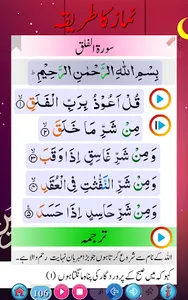 نماز کا طریقہ
سورة الفلق
بِسْمِ اللّٰهِ الرَّحْمٰنِ الرَّحِيْمِ
قُلْ اَعُوْذُ بِرَبِّ الْفَلَقِ ۙ﴿۱﴾
مِنْ شَرِّ مَا خَلَقَ ۙ﴿۲﴾
وَمِنْ شَرِّ غَاسِقٍ اِذَا وَقَبَ ۙ﴿۳﴾
وَمِنْ شَرِّ النَّفّٰثٰتِ فِى الْعُقَدِ ۙ﴿۴﴾
وَمِنْ شَرِّ حَاسِدٍ اِذَا حَسَدَ ﴿۵﴾
ترجمہ
اللہ کے نام سے شروع کرتا ہوں جو بڑا مہربان نہایت رحم والا ہے۔
کہو کہ میں صبح کے پروردگار کی پناہ مانگتا ہوں (۱)
106